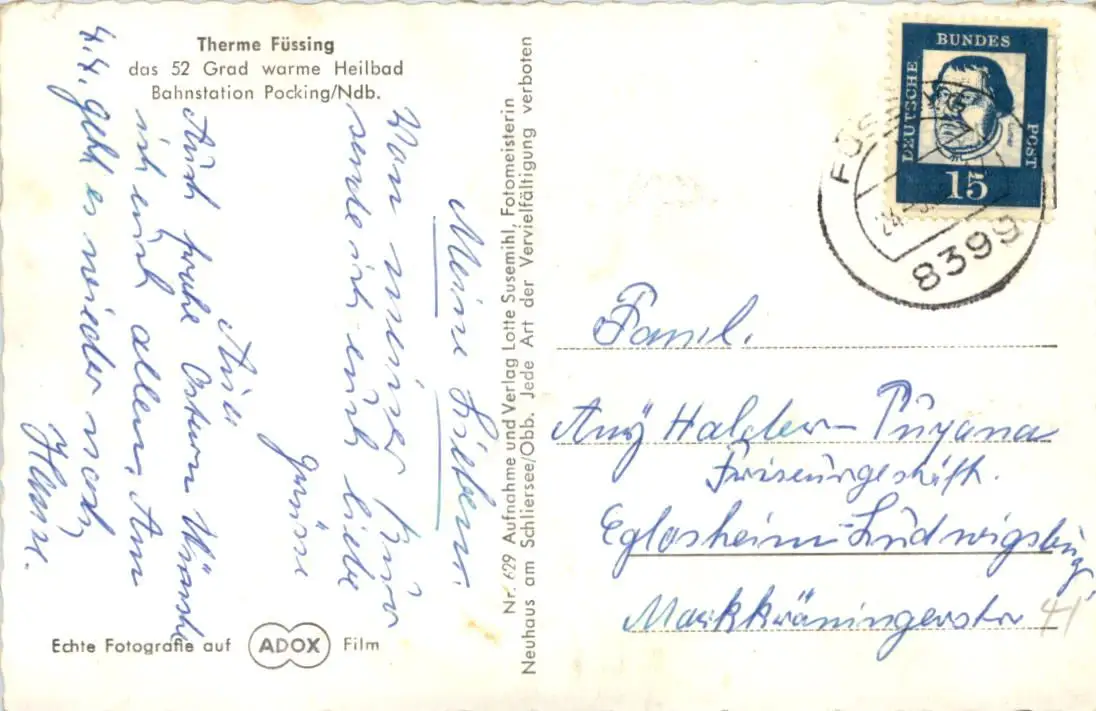 Therme Füssing
das 52 Grad warme Heilbad
Bahnstation Pocking/Ndb.
Meine Lieben.
Von meiner Kur
sende ich euch liebe
Grüsse
Auch frohe Ostern Wünsche
ich euch allen. Am
4.4. geht es wieder nach
Hause.
Echte Fotografie auf ADOX Film
Nr. 629 Aufnahme und Verlag Lotte Susemihl, Fotomeisterin
Neuhaus am Schliersee/Obb. Jede Art der Vervielfältigung verboten
DEUTSCHE BUNDES POST
15
FÜSSING
8399
Famil.
Any Halder-Puyana
Friseurgeschäft.
Eglosheim-Ludwigsburg
Markkröningerstr 41